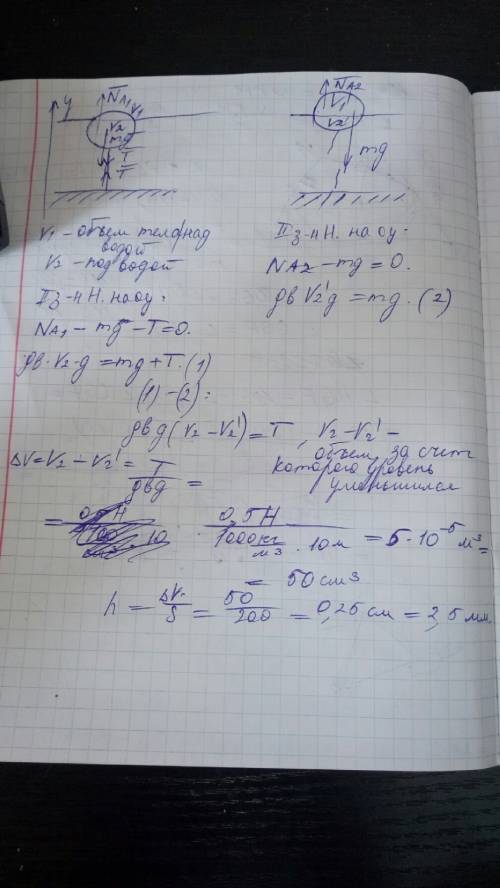 y N̄A1 V1
V2
mg
T̄
T̄
N̄A2
V1
V2'
mg
V1 - объем тела над
водой
V2 - под водой
II з-н Н. на оу:
NA1 - mg - T = 0.
ρв·V2·g = mg + T. (1)
II з-н Н. на оу:
NA2 - mg = 0.
ρв V2' g = mg. (2)
(1) - (2):
ρвg(V2 - V2') = T, V2 - V2' -
объем, за счет
которого уровень
уменьшился
ΔV = V2 - V2' = T/ρвg =
= 0,5Н/1000 кг/м³ · 10м = 5·10⁻⁵ м³ =
= 50 см³
h = ΔV/S = 50/200 = 0,25 см = 2,5 мм.